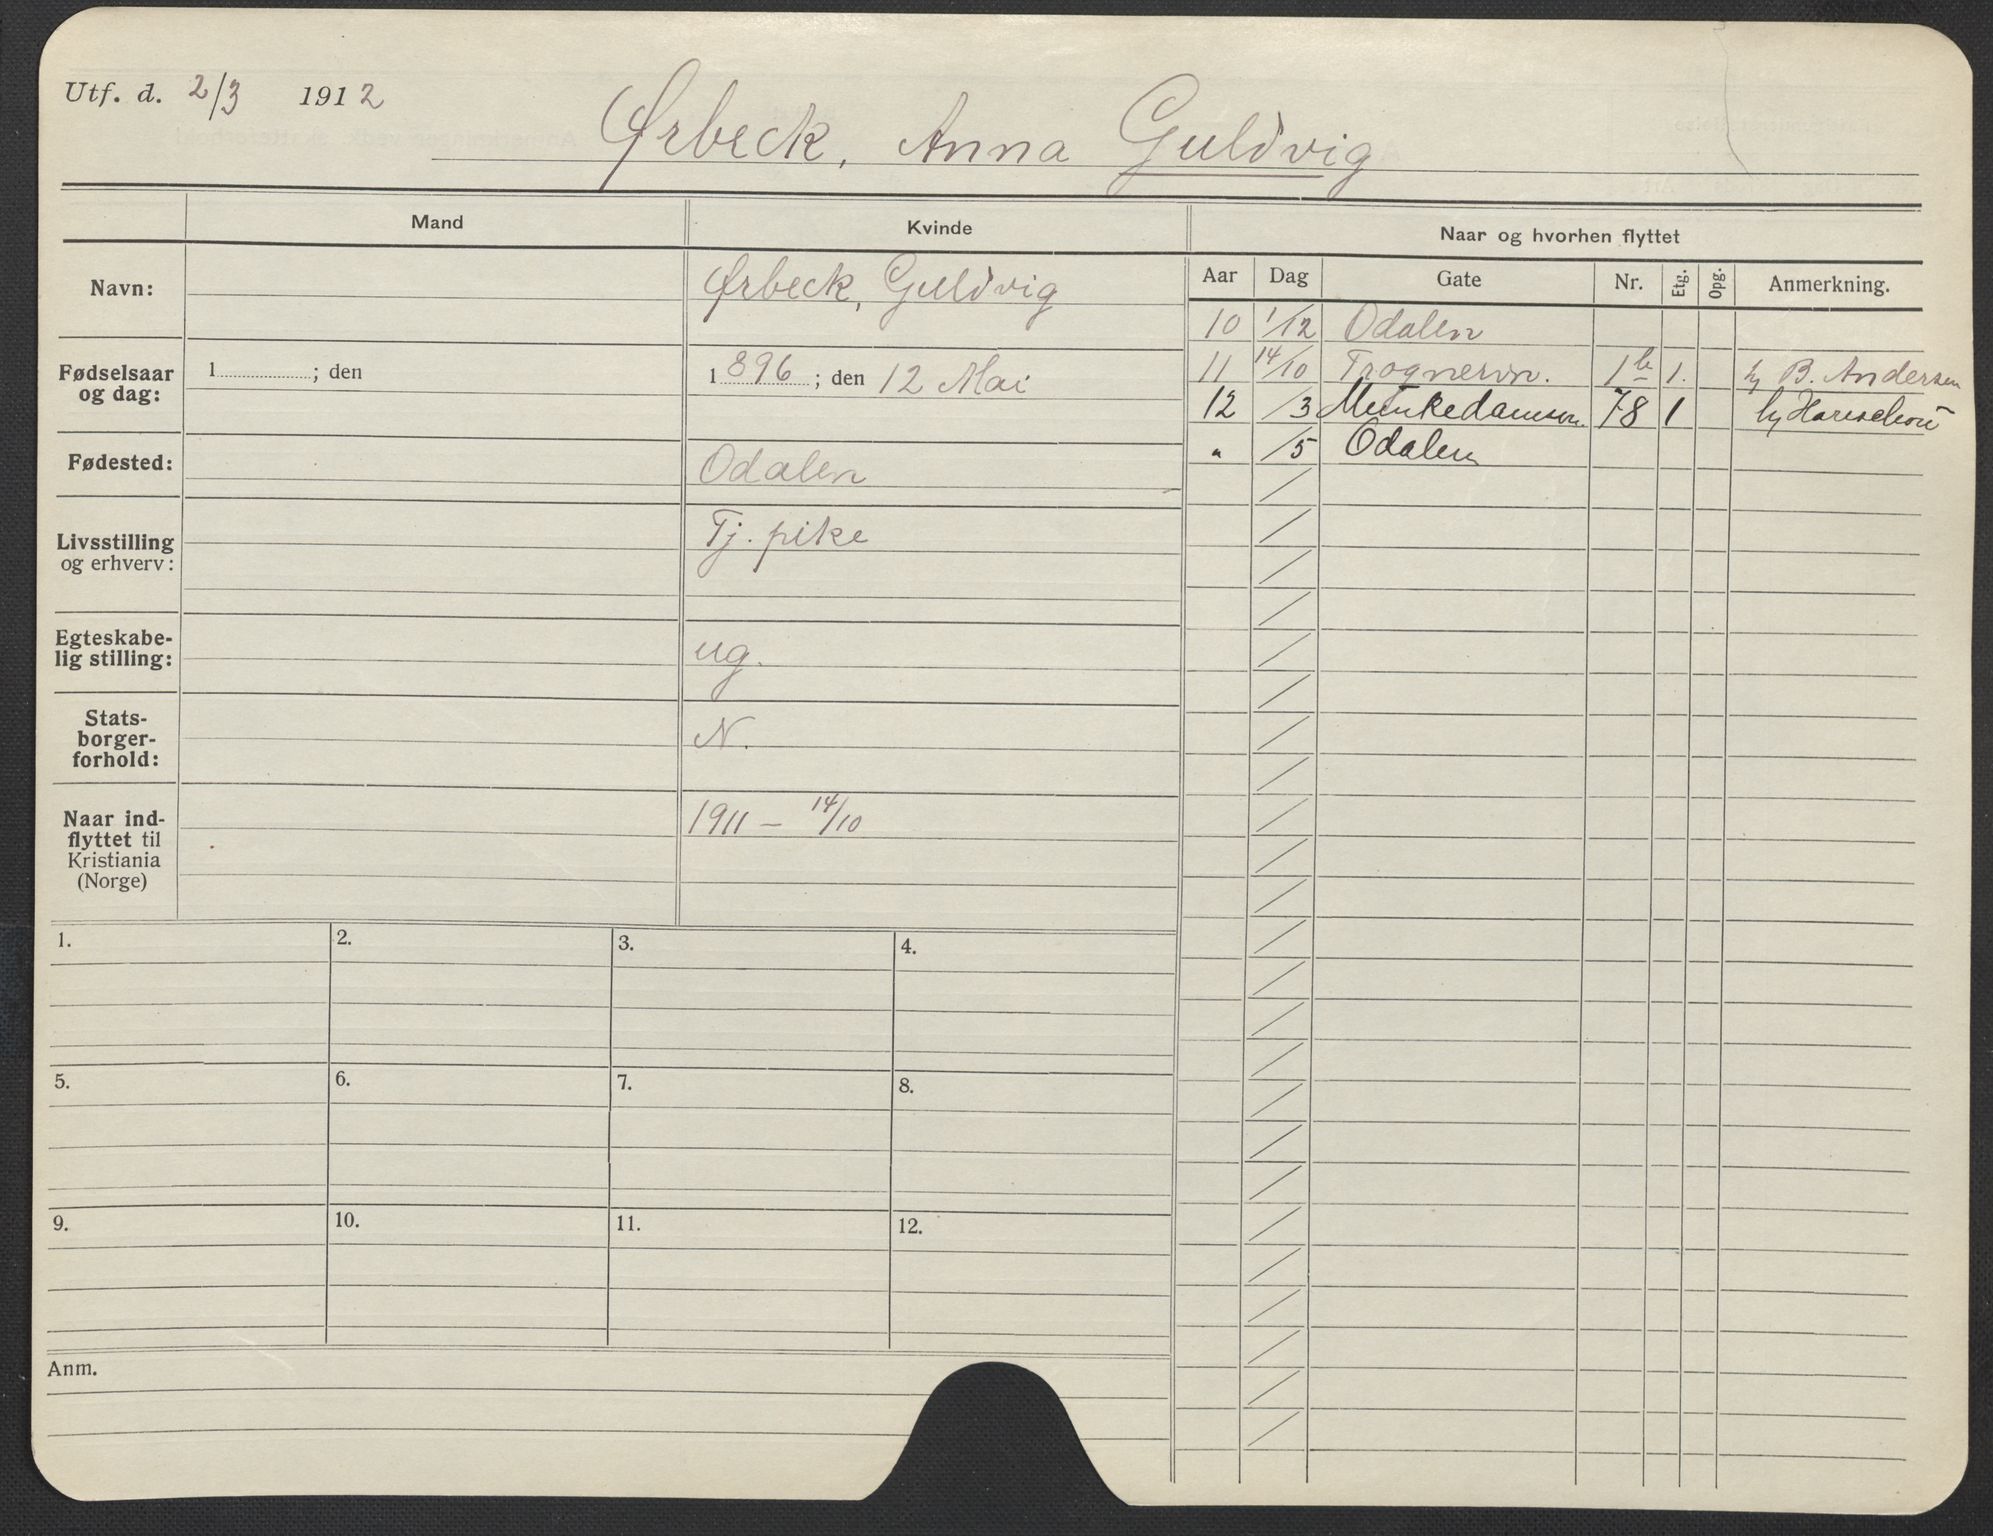 Utf. d. 2/3 1912
Ørbeck, Anna Guldvig
Mand Kvinde Naar og hvorhen flyttet
Navn: Ørbeck, Guldvig
Aar Dag Gate Nr. Etg. Opg. Anmerkning.
10 1/12 Odalen
11 14/10 Trognervn. 1b 1. hj B. Andersen
12 /3 Munkedamsvn. 78 1 hj
" /5 Odalen
Fødselsaar og dag: 1 ; den 1896 ; den 12 Mai
Fødested: Odalen
Livsstilling og erhverv: Tj. pike
Egteskabe-
lig stilling: ug.
Stats-
borger-
forhold: N.
Naar ind-
flyttet til
Kristiania
(Norge) 1911 – 14/10
1. 2. 3. 4.
5. 6. 7. 8.
9. 10. 11. 12.
Anm.